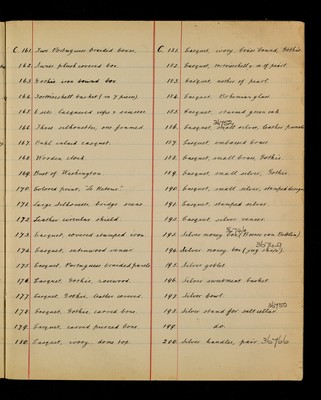 C. 161. Two Portuguese beaded boxes.
162. James plush covered box.
163. Gothic iron bound box
164. Tortoiseshell casket (in 7 pieces)
165. 6 silc lacquered cups & saucers
166. Three silhouettes, one framed
167. Buhl inlaid casquet
168. Wooden clock
169. Bust of Washington
170. Colored print, "Le Retour".
171. Large Silhouette, bridge scene
172. Leather circular shield
173. Casquet, covered stamped iron
174. Casquet, satinwood veneer
175. Casquet, Portuguese beaded panels
176. Casquet, Gothic, rosewood.
177. Casquet Gothic, leather covered
178. Casquet, Gothic, carved bone.
179. Casquet, carved pierced bone.
180. Casquet, ivory dome top.
C. 181. Casquet, ivory, brass bound, Gothic.
182. Casquet, tortoiseshell & m of pearl.
183. Casquet mother of pearl.
184. Casquet, Bohemian glass.
185. Casquet stained green oak
186. Casquet, small silver, leather panels
187. Casquet embossed brass.
188. Casquet, small brass, Gothic.
189. Casquet, small silver, Gothic
190. Casquet, small silver, stamped design
191. Casquet, stamped silver.
192. Casquet silver veneer.
193. Silver money box
194. Silver money box (jug shape).
195. Silver goblet
196. Silver sweetmeat basket
197. Silver bowl.
198. Silver stand for salt cellar
199. do.
200. Silver handles, pair.